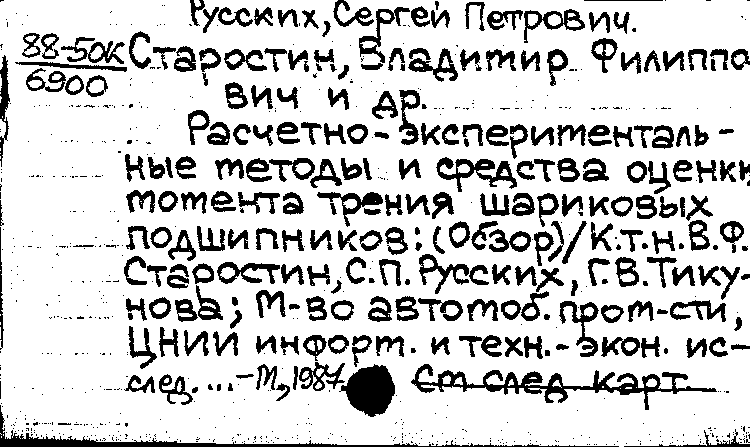 Русских, Сергей Петрович.
88-50К
6900
Старостин, Владимир Филиппо
вич и др.
Расчетно-эксперименталь-
ные методы и средства оценки
момента трения шариковых
подшипников: (Обзор)/К.т.н. В.Ф.
Старостин, С.П. Русских, Г.В. Тику-
нова; М-во автомоб. пром-сти,
ЦНИИ информ. и техн.-экон. ис-
след. ... -М., 1987.
См. след. карт.